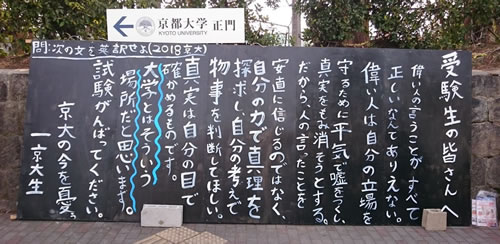 京都大学 正門
KYOTO UNIVERSITY
問:次の文を英訳せよ(2018京大)
受験生の皆さんへ
偉い人の言うことが、すべて
正しいなんてありえない。
偉い人は自分の立場を
守るために平気で嘘をつくし、
真実をもみ消そうとする。
だから、人の言ったことを
安直に信じるのではなく、
自分の力で真理を
探求し、自分の考えで
物事を判断してほしい。
真実は自分の目で
確かめるものです。
大学とはそういう
場所だと思います。
試験がんばってください。
京大の今を憂う、
一京大生